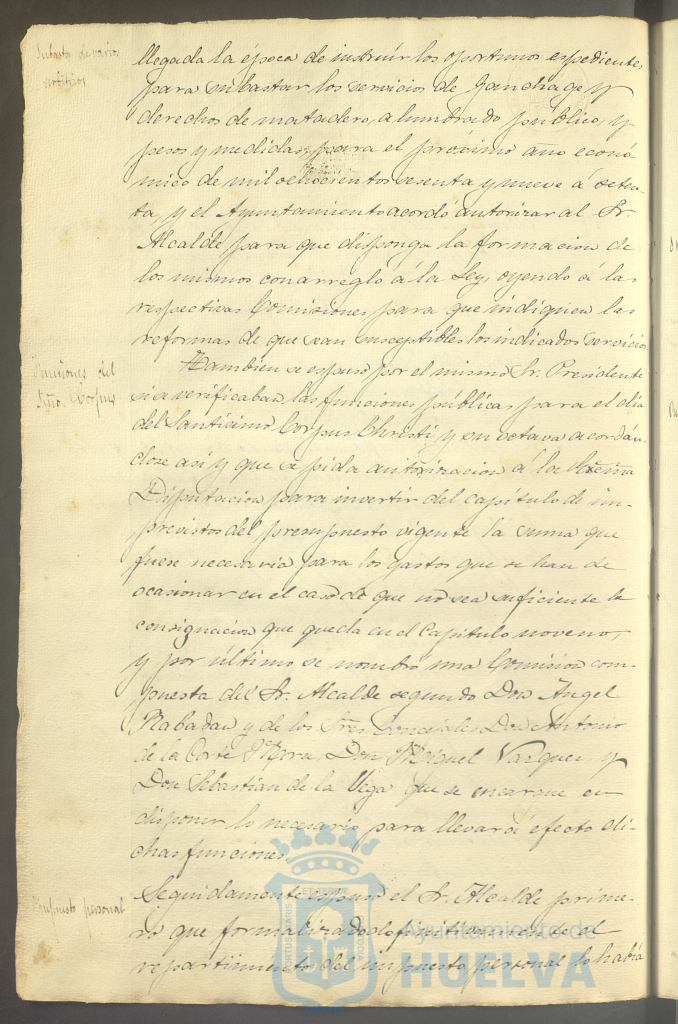 Subasta de varios
arbitrios
llegada la época de instruir los oportunos espedientes
para subastar los servicios de Ganchage, y
derechos de matadero, alumbrado público, y
pesos y medidas, para el próximo año econó
mico de mil ochocientos sesenta y nueve á seten-
ta, y el Ayuntamiento acordó autorizar al Sr.
Alcalde, para que disponga la formacion de
los mismos con arreglo á la Ley, oyendo á las
respectivas Comisiones para que indiquen las
reformas de que sean susceptibles los indicados servicios.
Funciones del
Corpus
Tambien se espuso por el mismo Sr. Presidente
si se verificaban las funciones públicas para el dia
del Santísimo Corpus Christi y su octava acordán-
dose asi y que se pida autorizacion á la Excma
Diputacion para invertir del capítulo de im-
previstos del presupuesto vigente la suma que
fuese necesaria para los gastos que se han de
ocasionar en el caso de que no sea suficiente la
consignacion que queda en el Capitulo noveno,
y por último se nombró una Comision com-
puesta del Sr. Alcalde segundo Don Angel
Rabadan y de los Sres Concejales Don Antonio
de la Corte y Mora, Don Miguel Vazquez, y
Don Sebastian de la Vega que se encargue en
disponer lo necesario para llevar á efecto di-
chas funciones.
Impuesto personal
Seguidamente espuso el Sr. Alcalde prime-
ro que formalizado definitivamente el
repartimiento del impuesto personal lo habia
Ayuntamiento de
HUELVA